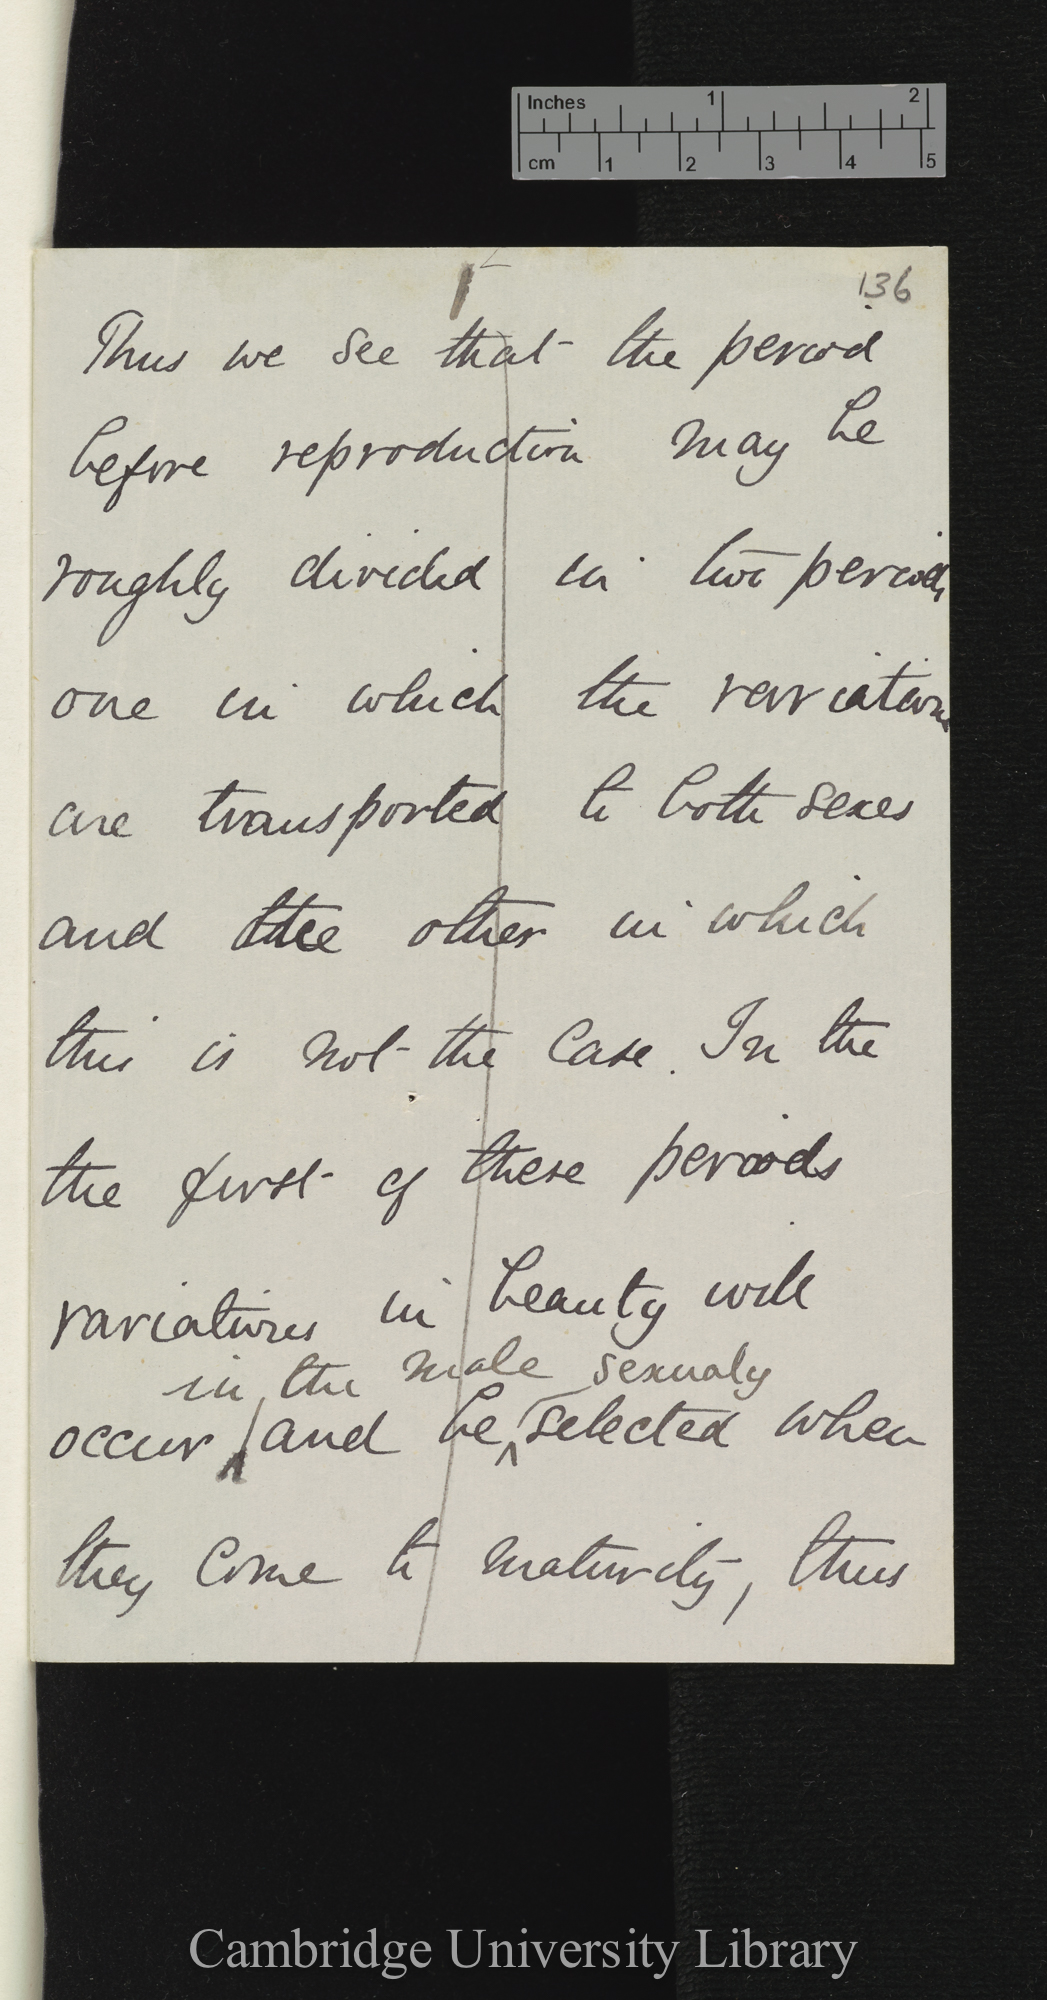 Inches 1 2
cm 1 2 3 4 5
136
Thus we see that the period
before reproduction may be
roughly divided in two periods
one in which the variations
are transported to both sexes
and the other in which
this is not the case. In the
the first of these periods
variations in beauty will
in the male sexualy
occur and be selected when
they come to maturity, thus
Cambridge University Library